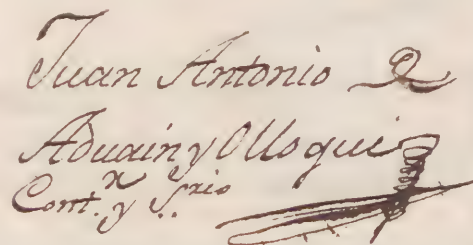 Juan Antonio de
Aduain y Olloqui
Cont.ʳ y S.ʳⁱᵒ